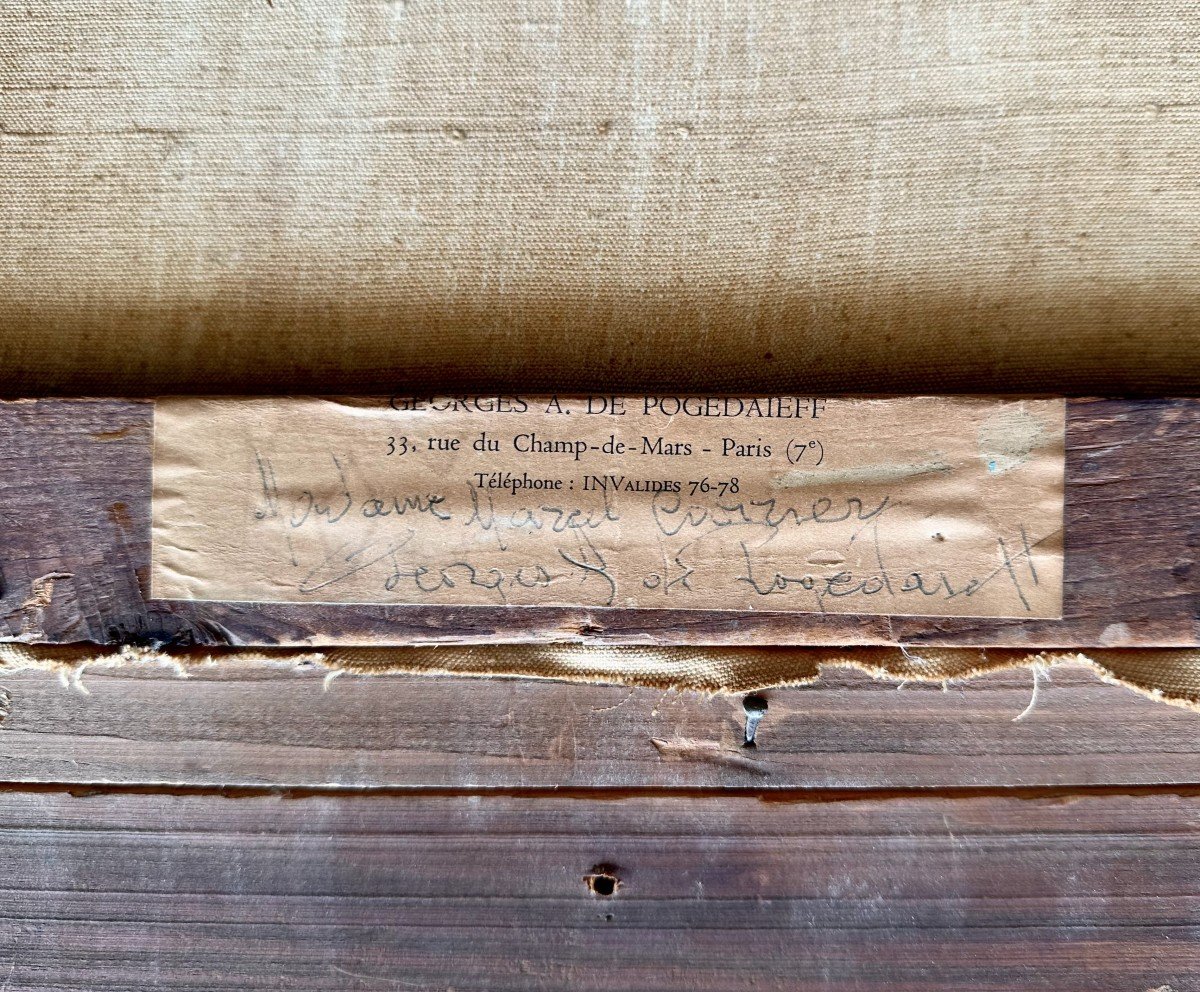 GEORGES A. DE POGEDAÏEFF
33, rue du Champ-de-Mars - Paris (7e)
Téléphone : INVALIDES 76-78
Madame Marcel
Georges A de Pogedaieff